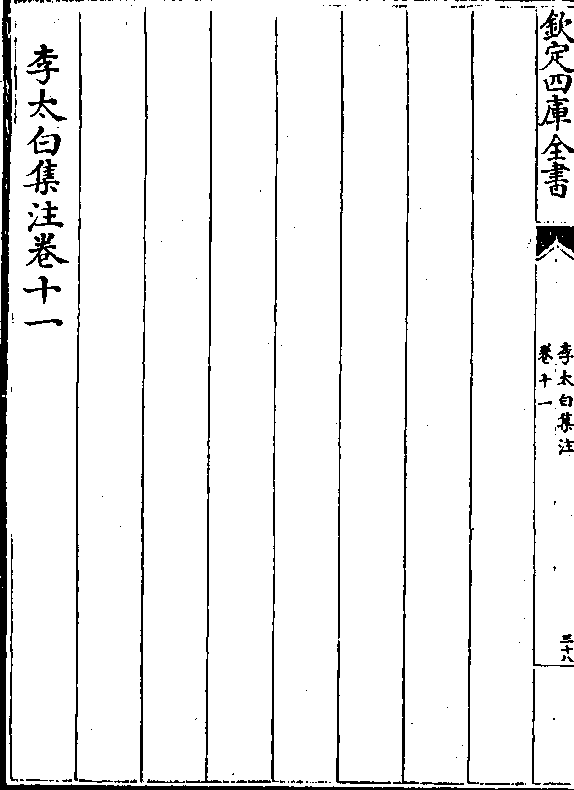 欽定四庫全書
李太白集注
卷十一
三十八
李太白集注卷十一